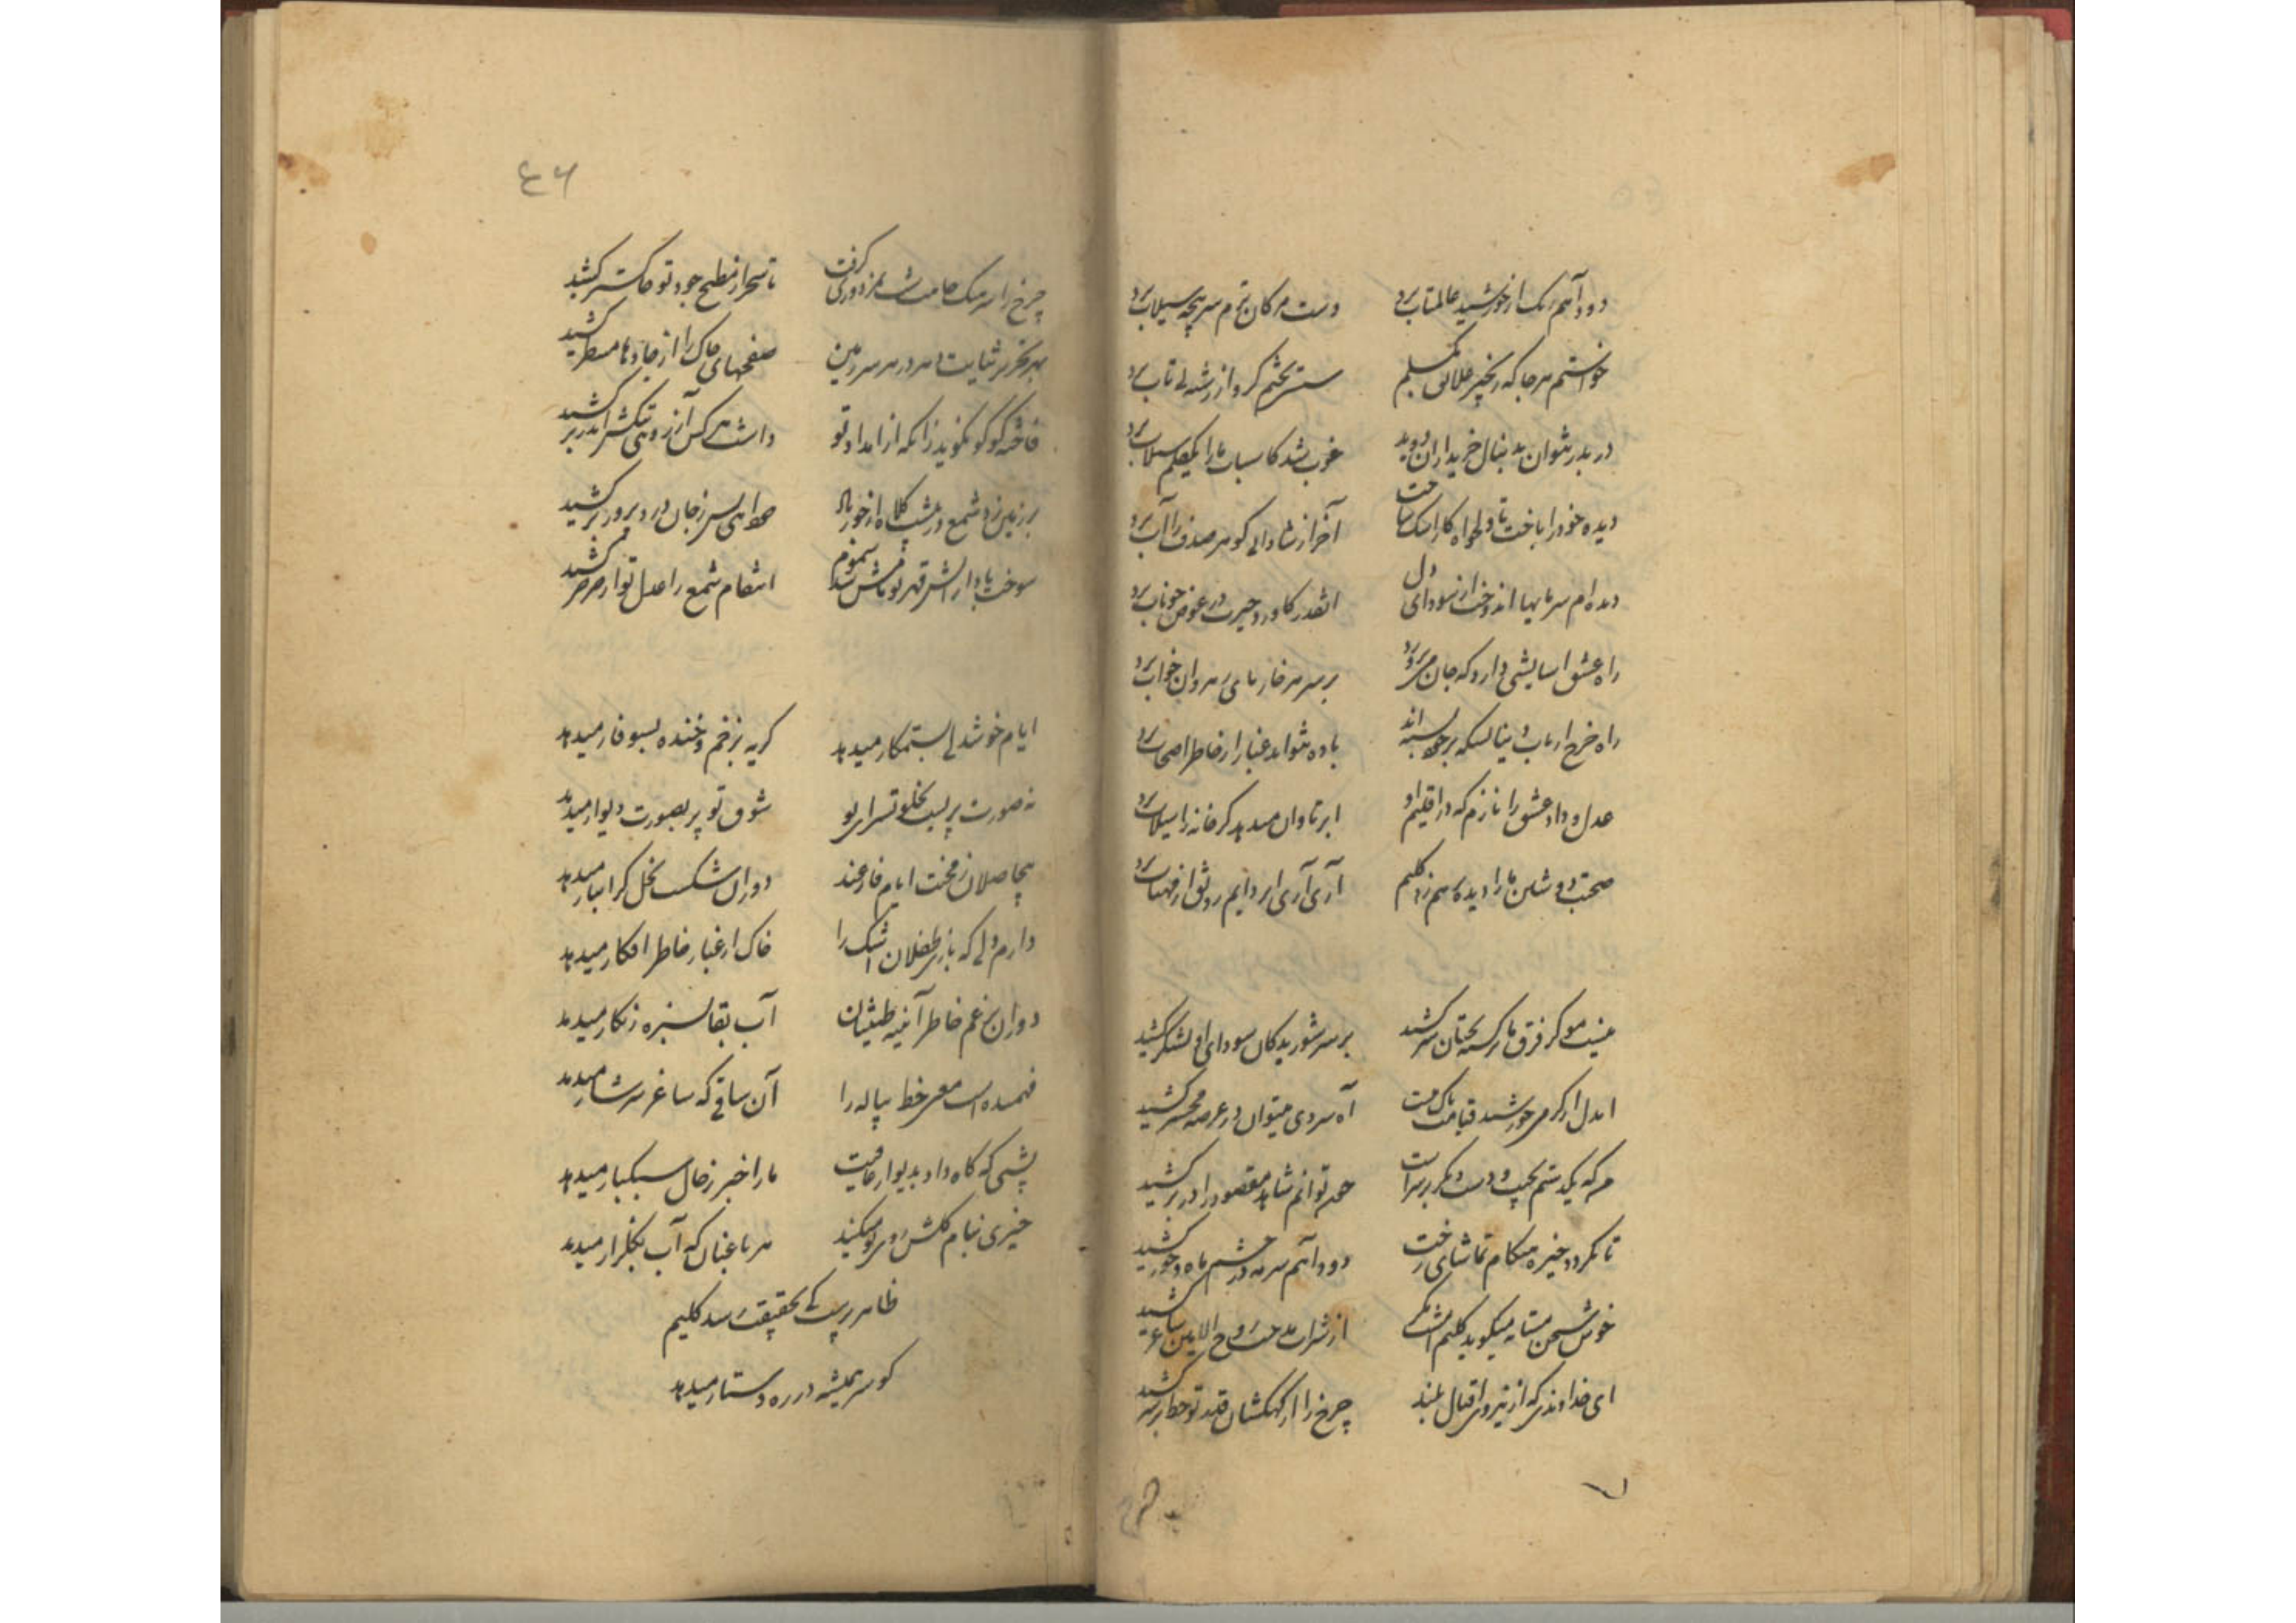 دود آهم رنگ از خورشید عالمتاب برد
دست مژکان ترم سرپنجه سیلاب برد
خواستم هر جا که زنجیر علائق بکسلم
سستی بختم کرو از رشته بی تاب برد
در بدر نتوان بدنبال خریداران دوید
خوب شد کاسباب ما را یکقلم سیلاب برد
دیده خود را باخت تا دلخواه کار اشک ساخت
آخر از شادابی کوهر صدف را آب برد
دیده ام سرمایها اندوخت از سودای دل
انقدر کاورد حیرت در عوض خوناب برد
راه عشق اسایشی دارد که جان می‌پرورد
بر سر هر خار پای رهروان خواب برد
راه خرج ارباب دنیا بسکه بر خود بسته اند
باده نتواند غبار از خاطر اصحاب برد
عدل و داد عشق را نازم که در اقلیم او
ابر تاوان میدهد کر خانه را سیلاب برد
صحبت دوشین ما را دیده برهم زد کلیم
آری آری ابر دایم رونق از مهتاب برد
نیست مو کز فرق ما برکشته بختان سر کشید
بر سر شوریدکان سودای او لشکر کشید
ایدل ار کرمی خورشید قیامت باک نیست
آه سردی میتوان در عرصه محشر کشید
من که یکدستم بچپ و دست دیکر بر سر است
چون توانم شاهد مقصود را در بر کشید
تا نکردد خیره هنکام تماشای رخت
دود آهم سرمه در چشم ماه و خور کشید
خوش سخن مستانه میکوید کلیم
از شراب مدحت روح الامین ساغر کشید
ای خداوندی که از نیروی اقبال بلند
چرخ را از کهکشان قدر تو خط بر سر کشید
ل
چرخ را
٤٦
چرخ را سرهنک جاهت بمزدوری کرفت
تا سحر از مطبخ جود تو خاکستر کشید
بهر تحریر ثنایت دهر در هر سرزمین
صفحهای خاک را از جادها مسطر کشید
فاخته کوکو نکوید زانکه از امداد تو
داشت هر کس آرزوی تنکش اندر بر کشید
بر زمین زد شمع در شب کلاه از خود
انتقام شمع را عدل تو از صرصر کشید
سوخت باد از آتش قهر تو نامش شد سموم
ایام خوشدلی بستمکار میدهد
کریه بزخم و خنده بسوفار میدهد
نه صورت پریست بخلوتسرای تو
شوق تو پر بصورت دیوار میدهد
بیحاصلان ز محنت ایام فارغند
دوران شکست نخل کرانبار میدهد
دارم دلی که بازی طفلان اشک را
خاک از غبار خاطر افکار میدهد
دوران برغم خاطر آیینه طینتان
آب بقا بسبزه زنکار میدهد
فهمیده است معنی خط پیاله را
آن ساقی که ساغر سرشار میدهد
پشتی که کاه داد بدیوار عافیت
ما را خبر ز حال سبکبار میدهد
خیری بنام کلشن روی تو میکند
هر باغبان که آب بکلزار میدهد
ظاهر پرست کی بحقیقت رسد کلیم
کو سر همیشه در ره دستار میدهد